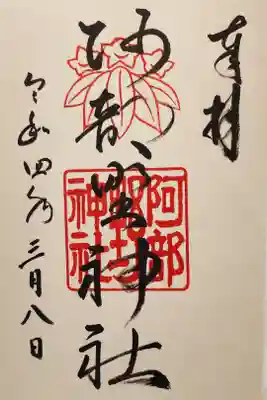 奉拝
阿部野神社
阿部野神社
令和四年三月八日